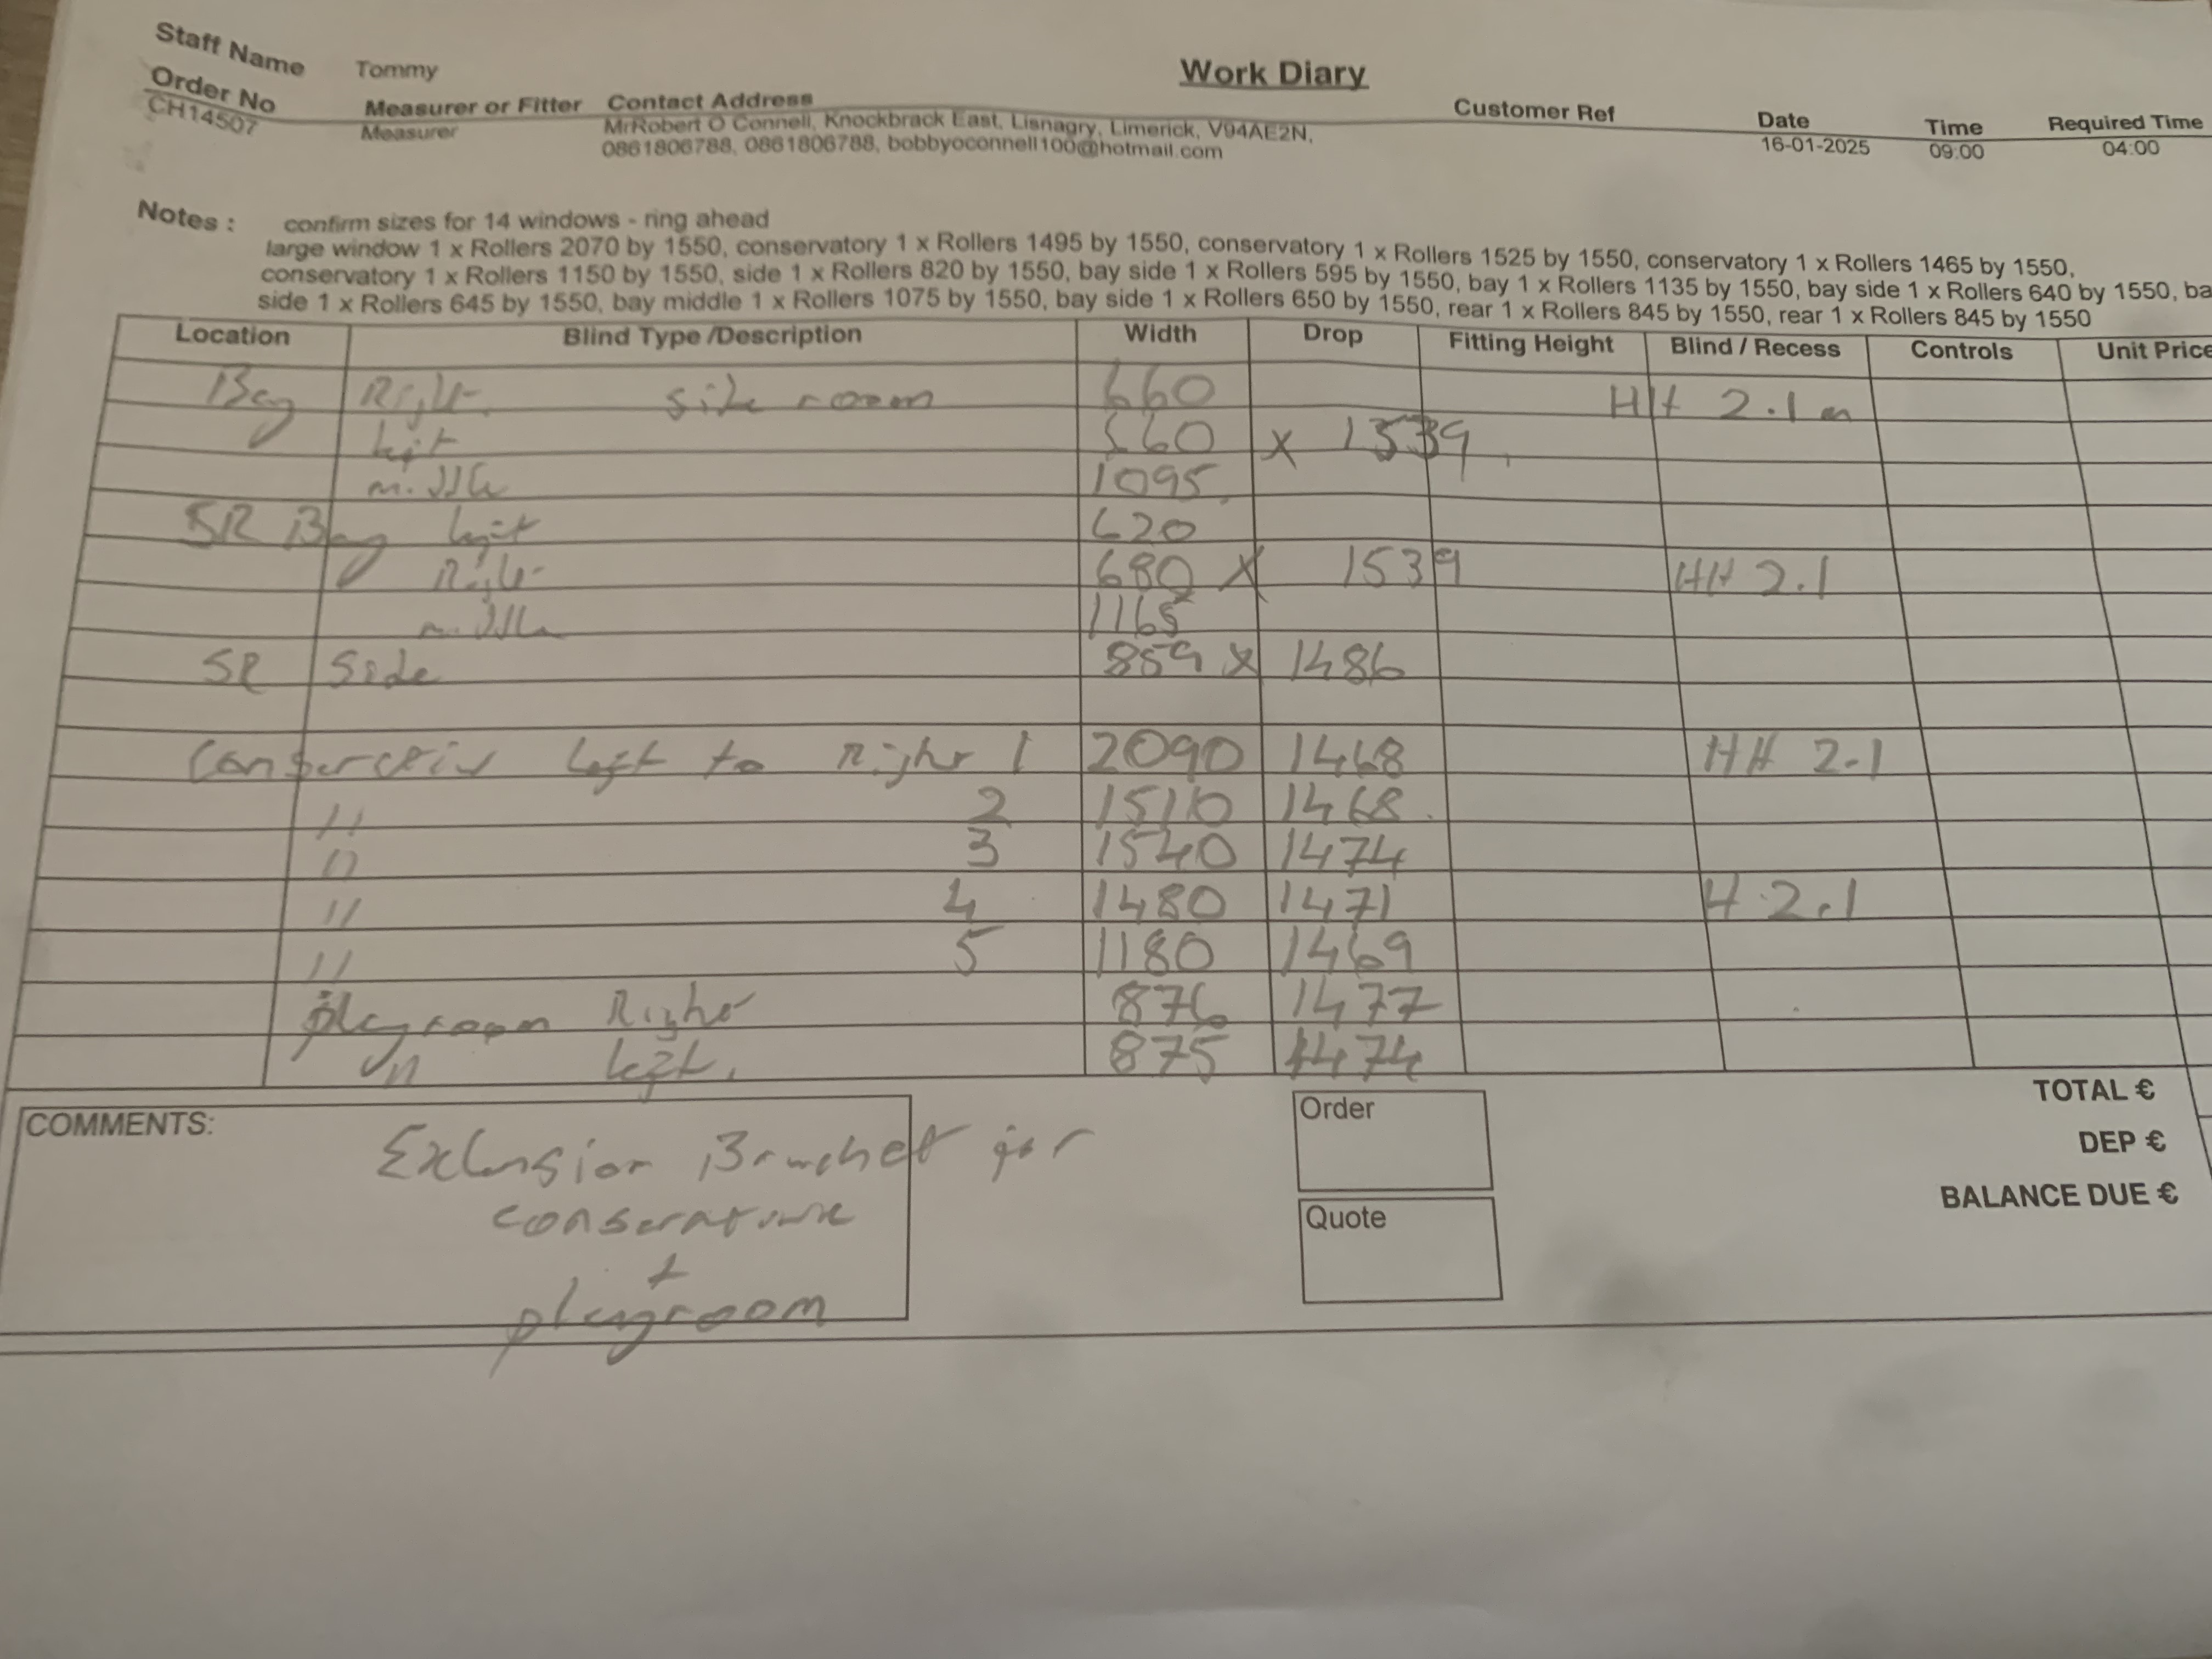 Work Diary
Staff Name Tommy
Order No Measurer or Fitter Contact Address Customer Ref Date Time Required Time
CH14507 Measurer MrRobert O Connell, Knockbrack East, Lisnagry, Limerick, V94AE2N, 16-01-2025 09:00 04:00
0861806788, 0861806788, bobbyoconnell100@hotmail.com
Notes : confirm sizes for 14 windows - ring ahead
large window 1 x Rollers 2070 by 1550, conservatory 1 x Rollers 1495 by 1550, conservatory 1 x Rollers 1525 by 1550, conservatory 1 x Rollers 1465 by 1550,
conservatory 1 x Rollers 1150 by 1550, side 1 x Rollers 820 by 1550, bay side 1 x Rollers 595 by 1550, bay 1 x Rollers 1135 by 1550, bay side 1 x Rollers 640 by 1550, ba
side 1 x Rollers 645 by 1550, bay middle 1 x Rollers 1075 by 1550, bay side 1 x Rollers 650 by 1550, rear 1 x Rollers 845 by 1550, rear 1 x Rollers 845 by 1550
Location Blind Type /Description Width Drop Fitting Height Blind / Recess Controls Unit Price
Bay Right side room 660 HH 2.1 m
left 660 x 1539
middle 1095
SR Bay left 620
Right 680 x 1539 HH 2.1
middle 1165
SR Side 859 x 1486
left to Right 1 2090 1468 HH 2.1
" 2 1510 1468
" 3 1540 1474
" 4 1480 1471 H 2.1
" 5 1180 1469
playroom Right 876 1477
" left. 875 1474
COMMENTS: Bracket for
+
playroom
Order
Quote
TOTAL €
DEP €
BALANCE DUE €